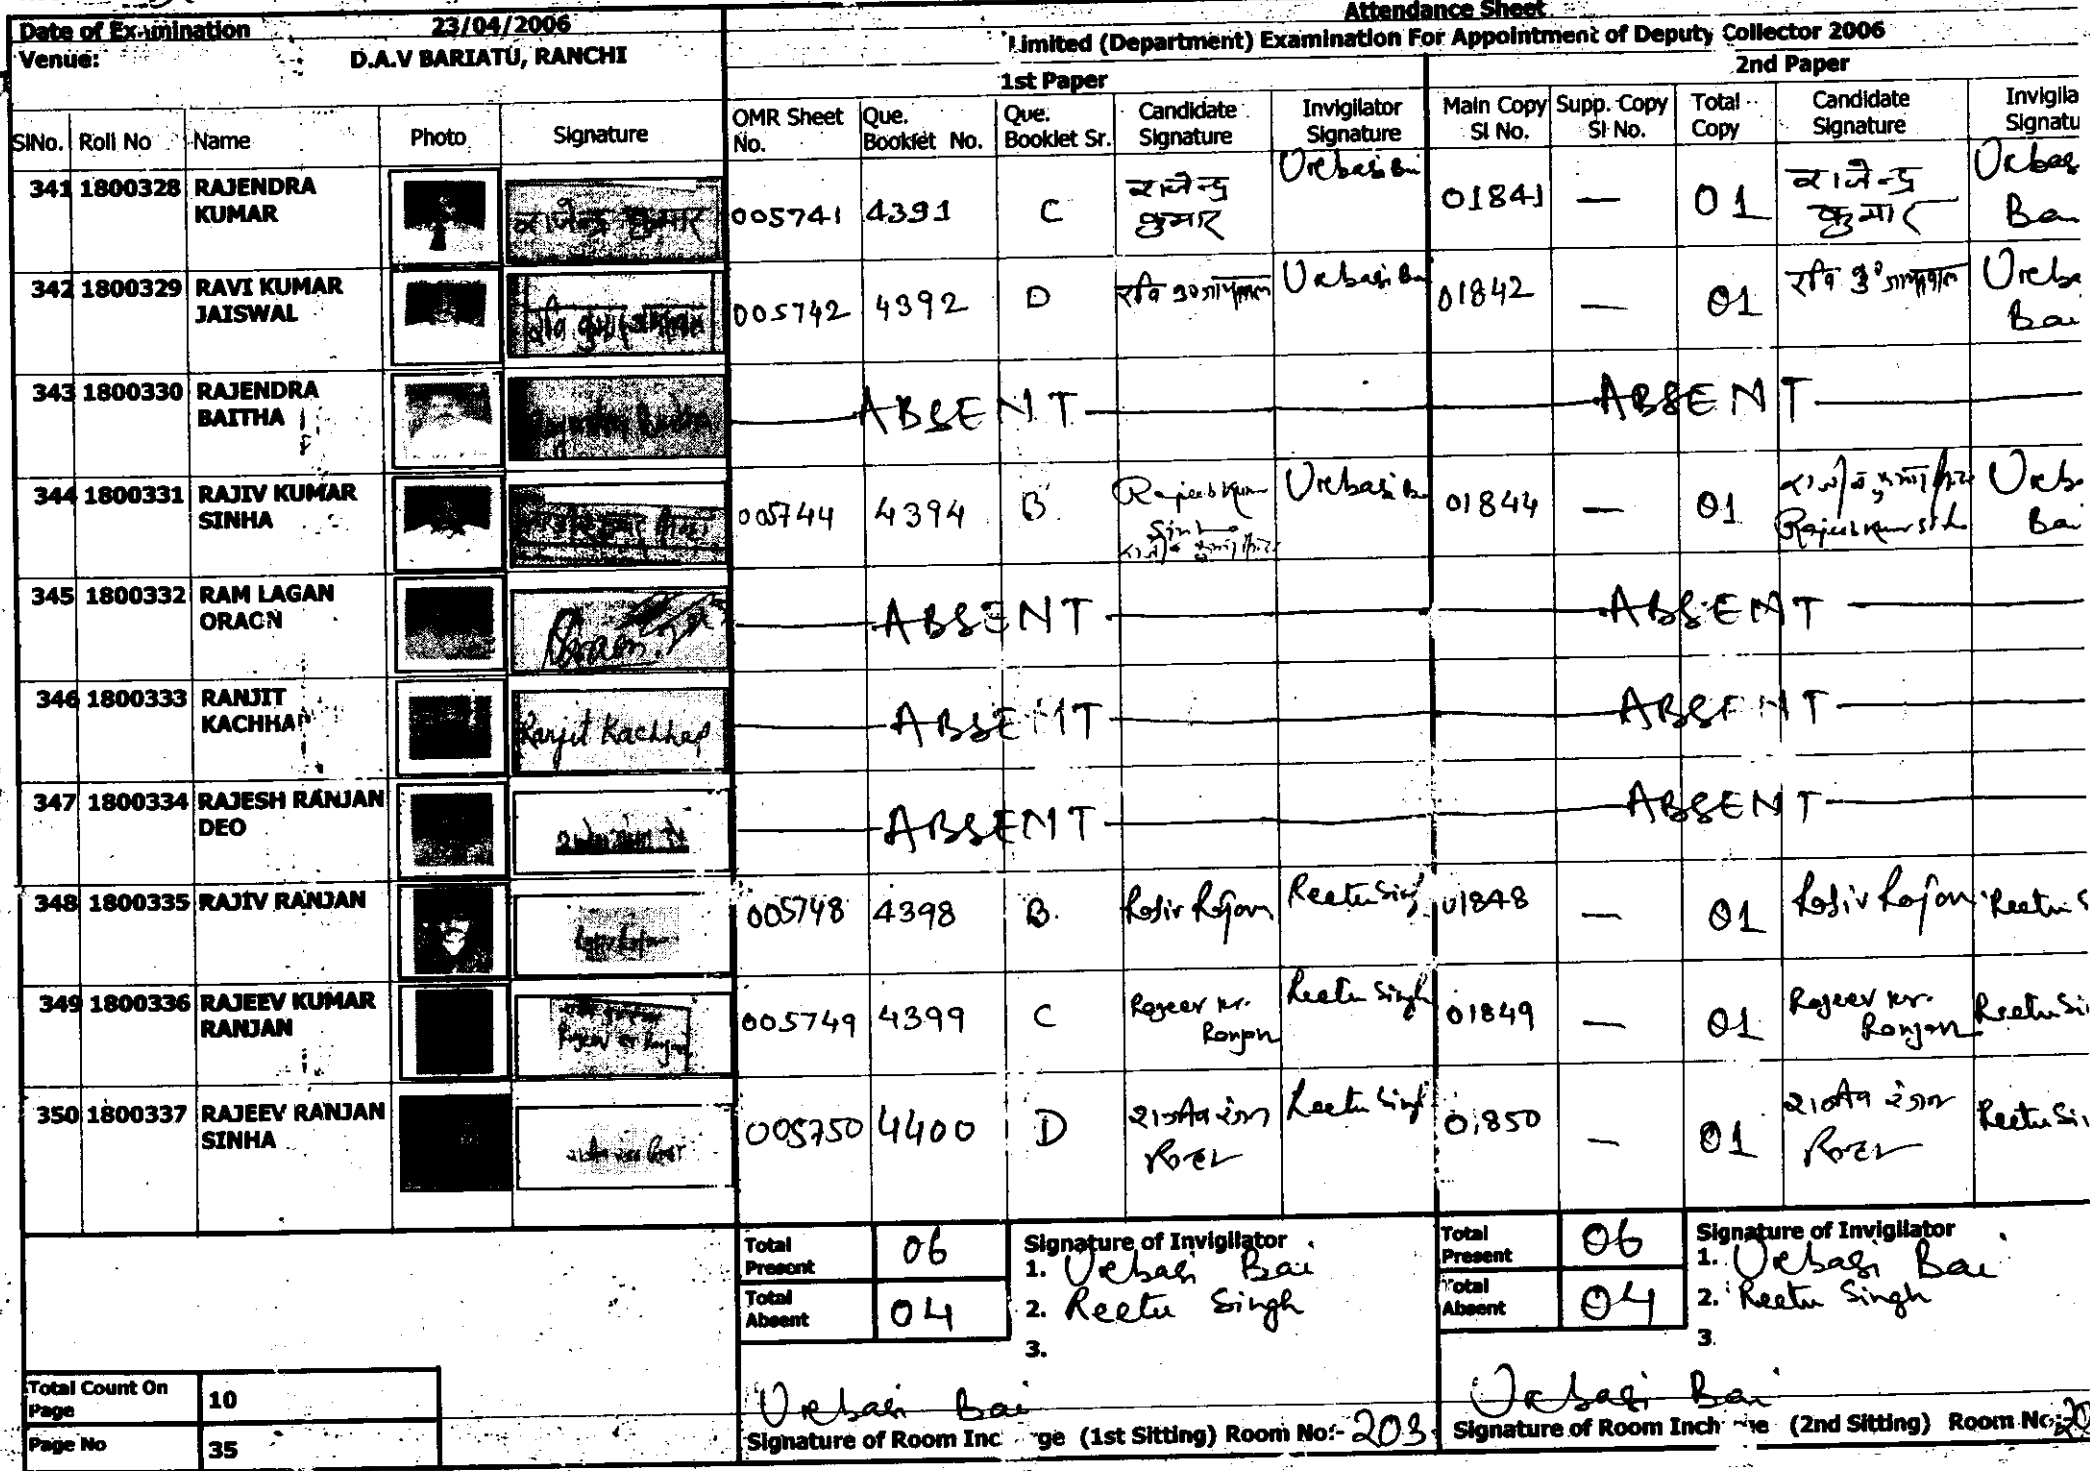 Attendance Sheet
Date of Examination 23/04/2006
Limited (Department) Examination For Appointment of Deputy Collector 2006
Venue: D.A.V BARIATU, RANCHI
1st Paper 2nd Paper
SlNo. Roll No Name Photo Signature OMR Sheet No. Que. Booklet No. Que. Booklet Sr. Candidate Signature Invigilator Signature Main Copy Sl No. Supp. Copy Sl No. Total Copy Candidate Signature Invigila Signatu
341 1800328 RAJENDRA KUMAR राजेन्द्र कुमार 005741 4391 C राजेन्द्र कुमार Urbasi Bai 01841 — 01 राजेन्द्र कुमार Urbas Bai
342 1800329 RAVI KUMAR JAISWAL 005742 4392 D रवि कु० जायसवाल Urbasi Bai 01842 — 01 रवि कु० जायसवाल Urbas Bai
343 1800330 RAJENDRA BAITHA ABSENT ABSENT
344 1800331 RAJIV KUMAR SINHA 005744 4394 B Rajeeb Kumar Sinha Urbasi Ba 01844 — 01 Rajeeb Kumar Sinha Urbs Bai
345 1800332 RAM LAGAN ORAON ABSENT ABSENT
346 1800333 RANJIT KACHHAP Ranjit Kachhap ABSENT ABSENT
347 1800334 RAJESH RANJAN DEO ABSENT ABSENT
348 1800335 RAJIV RANJAN 005748 4398 B. Rajiv Rajan Reetu Sing 01848 — 01 Rajiv Rajan Reetu S
349 1800336 RAJEEV KUMAR RANJAN Rajeev kr Ranjan 005749 4399 C Rajeev kr. Ranjan Reetu Singh 01849 — 01 Rajeev kr. Ranjan Reetu Si
350 1800337 RAJEEV RANJAN SINHA 005750 4400 D राजीव रंजन सिन्हा Reetu Singh 01850 — 01 राजीव रंजन सिन्हा Reetu Si
Total Present 06 Signature of Invigilator Total Present 06 Signature of Invigilator
1. Urbasi Bai 1. Urbasi Bai
Total Absent 04 2. Reetu Singh Total Absent 04 2. Reetu Singh
3. 3.
Total Count On Page 10 Urbasi Bai Urbasi Bai
Page No 35 Signature of Room Inc ge (1st Sitting) Room No:- 203 Signature of Room Inch ge (2nd Sitting) Room No:- 20